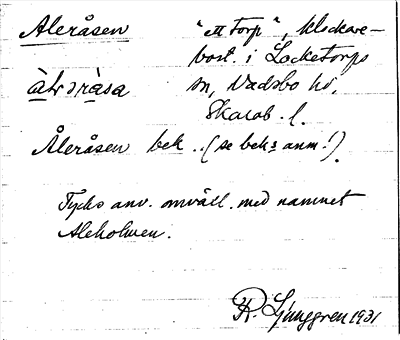 Aleråsen "ett torp", klockare-
bost. i Locketorps
àlɘràsa sn, Vadsbo hd,
Skarab. l.
Åleråsen bek. (se bek:s anm!).
Tycks anv. omväxl. med namnet
Aleholmen.
R. Ljunggren 1931